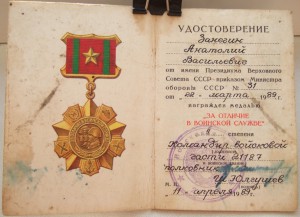 УДОСТОВЕРЕНИЕ
Занегин
Анатолий
Васильевич
от имени Президиума Верховного
Совета СССР приказом Министра
обороны СССР № 31
от «22» марта 1989г.
награжден медалью
„ЗА ОТЛИЧИЕ
В ВОИНСКОЙ СЛУЖБЕ"
степени
Командир войсковой
части 21187
полковник
М. П.
11 апреля 1989г.